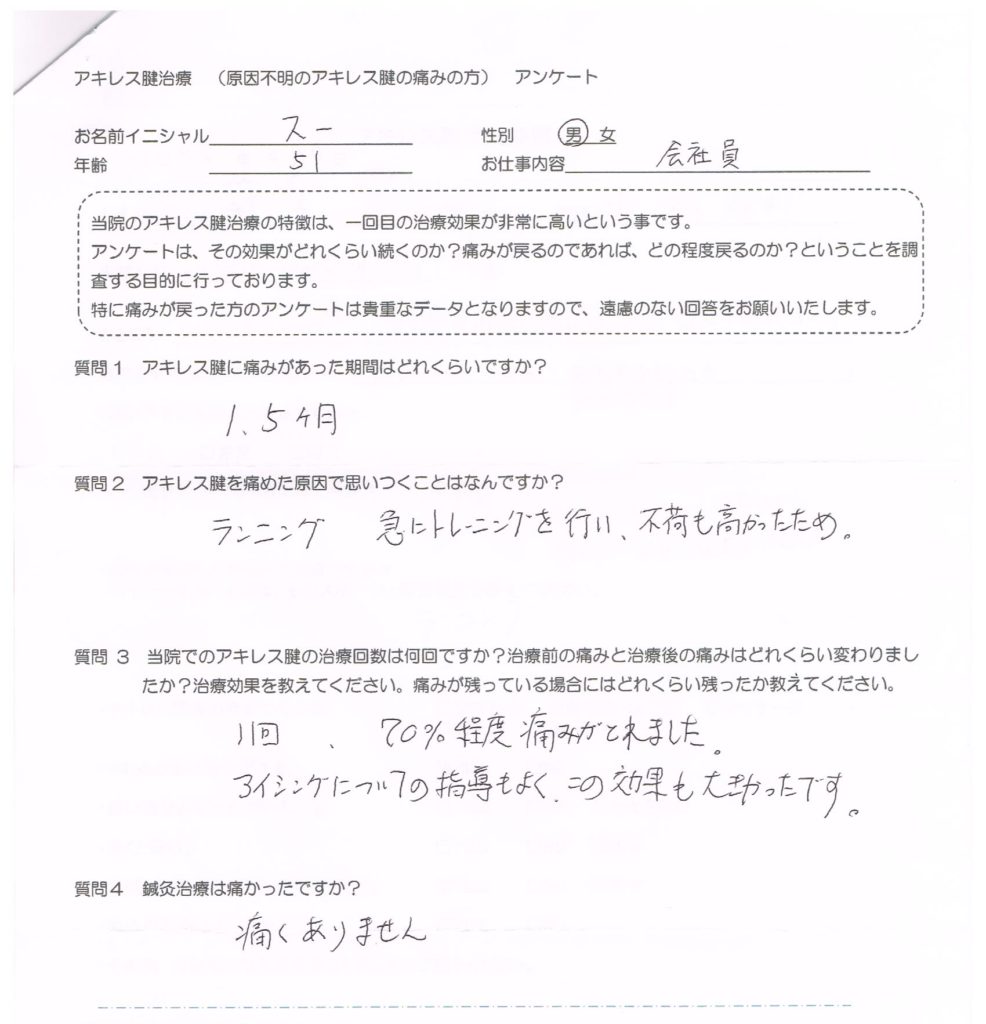 アキレス腱治療 （原因不明のアキレス腱の痛みの方） アンケート
お名前イニシャル スー 性別 男 女
年齢 51 お仕事内容 会社員
当院のアキレス腱治療の特徴は、一回目の治療効果が非常に高いという事です。
アンケートは、その効果がどれくらい続くのか？痛みが戻るのであれば、どの程度戻るのか？ということを調
査する目的に行っております。
特に痛みが戻った方のアンケートは貴重なデータとなりますので、遠慮のない回答をお願いいたします。
質問１ アキレス腱に痛みがあった期間はどれくらいですか？
1、5ヶ月
質問２ アキレス腱を痛めた原因で思いつくことはなんですか？
ランニング 急にトレーニングを行い、不荷も高かったため。
質問 ３ 当院でのアキレス腱の治療回数は何回ですか？治療前の痛みと治療後の痛みはどれくらい変わりまし
たか？治療効果を教えてください。痛みが残っている場合にはどれくらい残ったか教えてください。
11回 、 70％程度痛みがとれました。
アイシングについての指導もよく、この効果も大きかったです。
質問４ 鍼灸治療は痛かったですか？
痛くありません